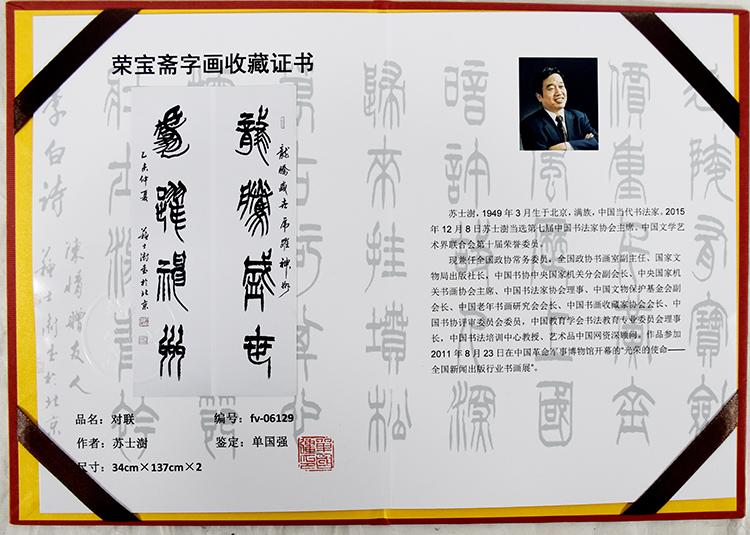 荣宝斋字画收藏证书
龍騰盛世
龍騰盛世 虎躍神州
躍神州
乙未仲夏 蘇士澍書於北京
品名：对联 编号：fv-06129
作者：苏士澍 鉴定：单国强
尺寸：34cm×137cm×2
苏士澍，1949 年 3 月生于北京，满族，中国当代书法家。2015
年 12 月 8 日苏士澍当选第七届中国书法家协会主席、中国文学艺
术界联合会第十届荣誉委员。
现兼任全国政协常务委员，全国政协书画室副主任、国家文
物局出版社长，中国书协中央国家机关分会副会长、中央国家机
关书画协会主席、中国书法家协会理事、中国文物保护基金会副
会长、中国老年书画研究会会长、中国书画收藏家协会会长、中
国书协评审委员会委员，中国教育学会书法教育专业委员会理事
长，中国书法培训中心教授、艺术品中国网资深顾问。作品参加
2011 年 8 月 23 日在中国革命军事博物馆开幕的“光荣的使命——
全国新闻出版行业书画展”。
陵有寶劍
價重
風
上國
暗許
深
歸來挂墳松
李白诗
陳情贈友人
蘇士澍書於北京